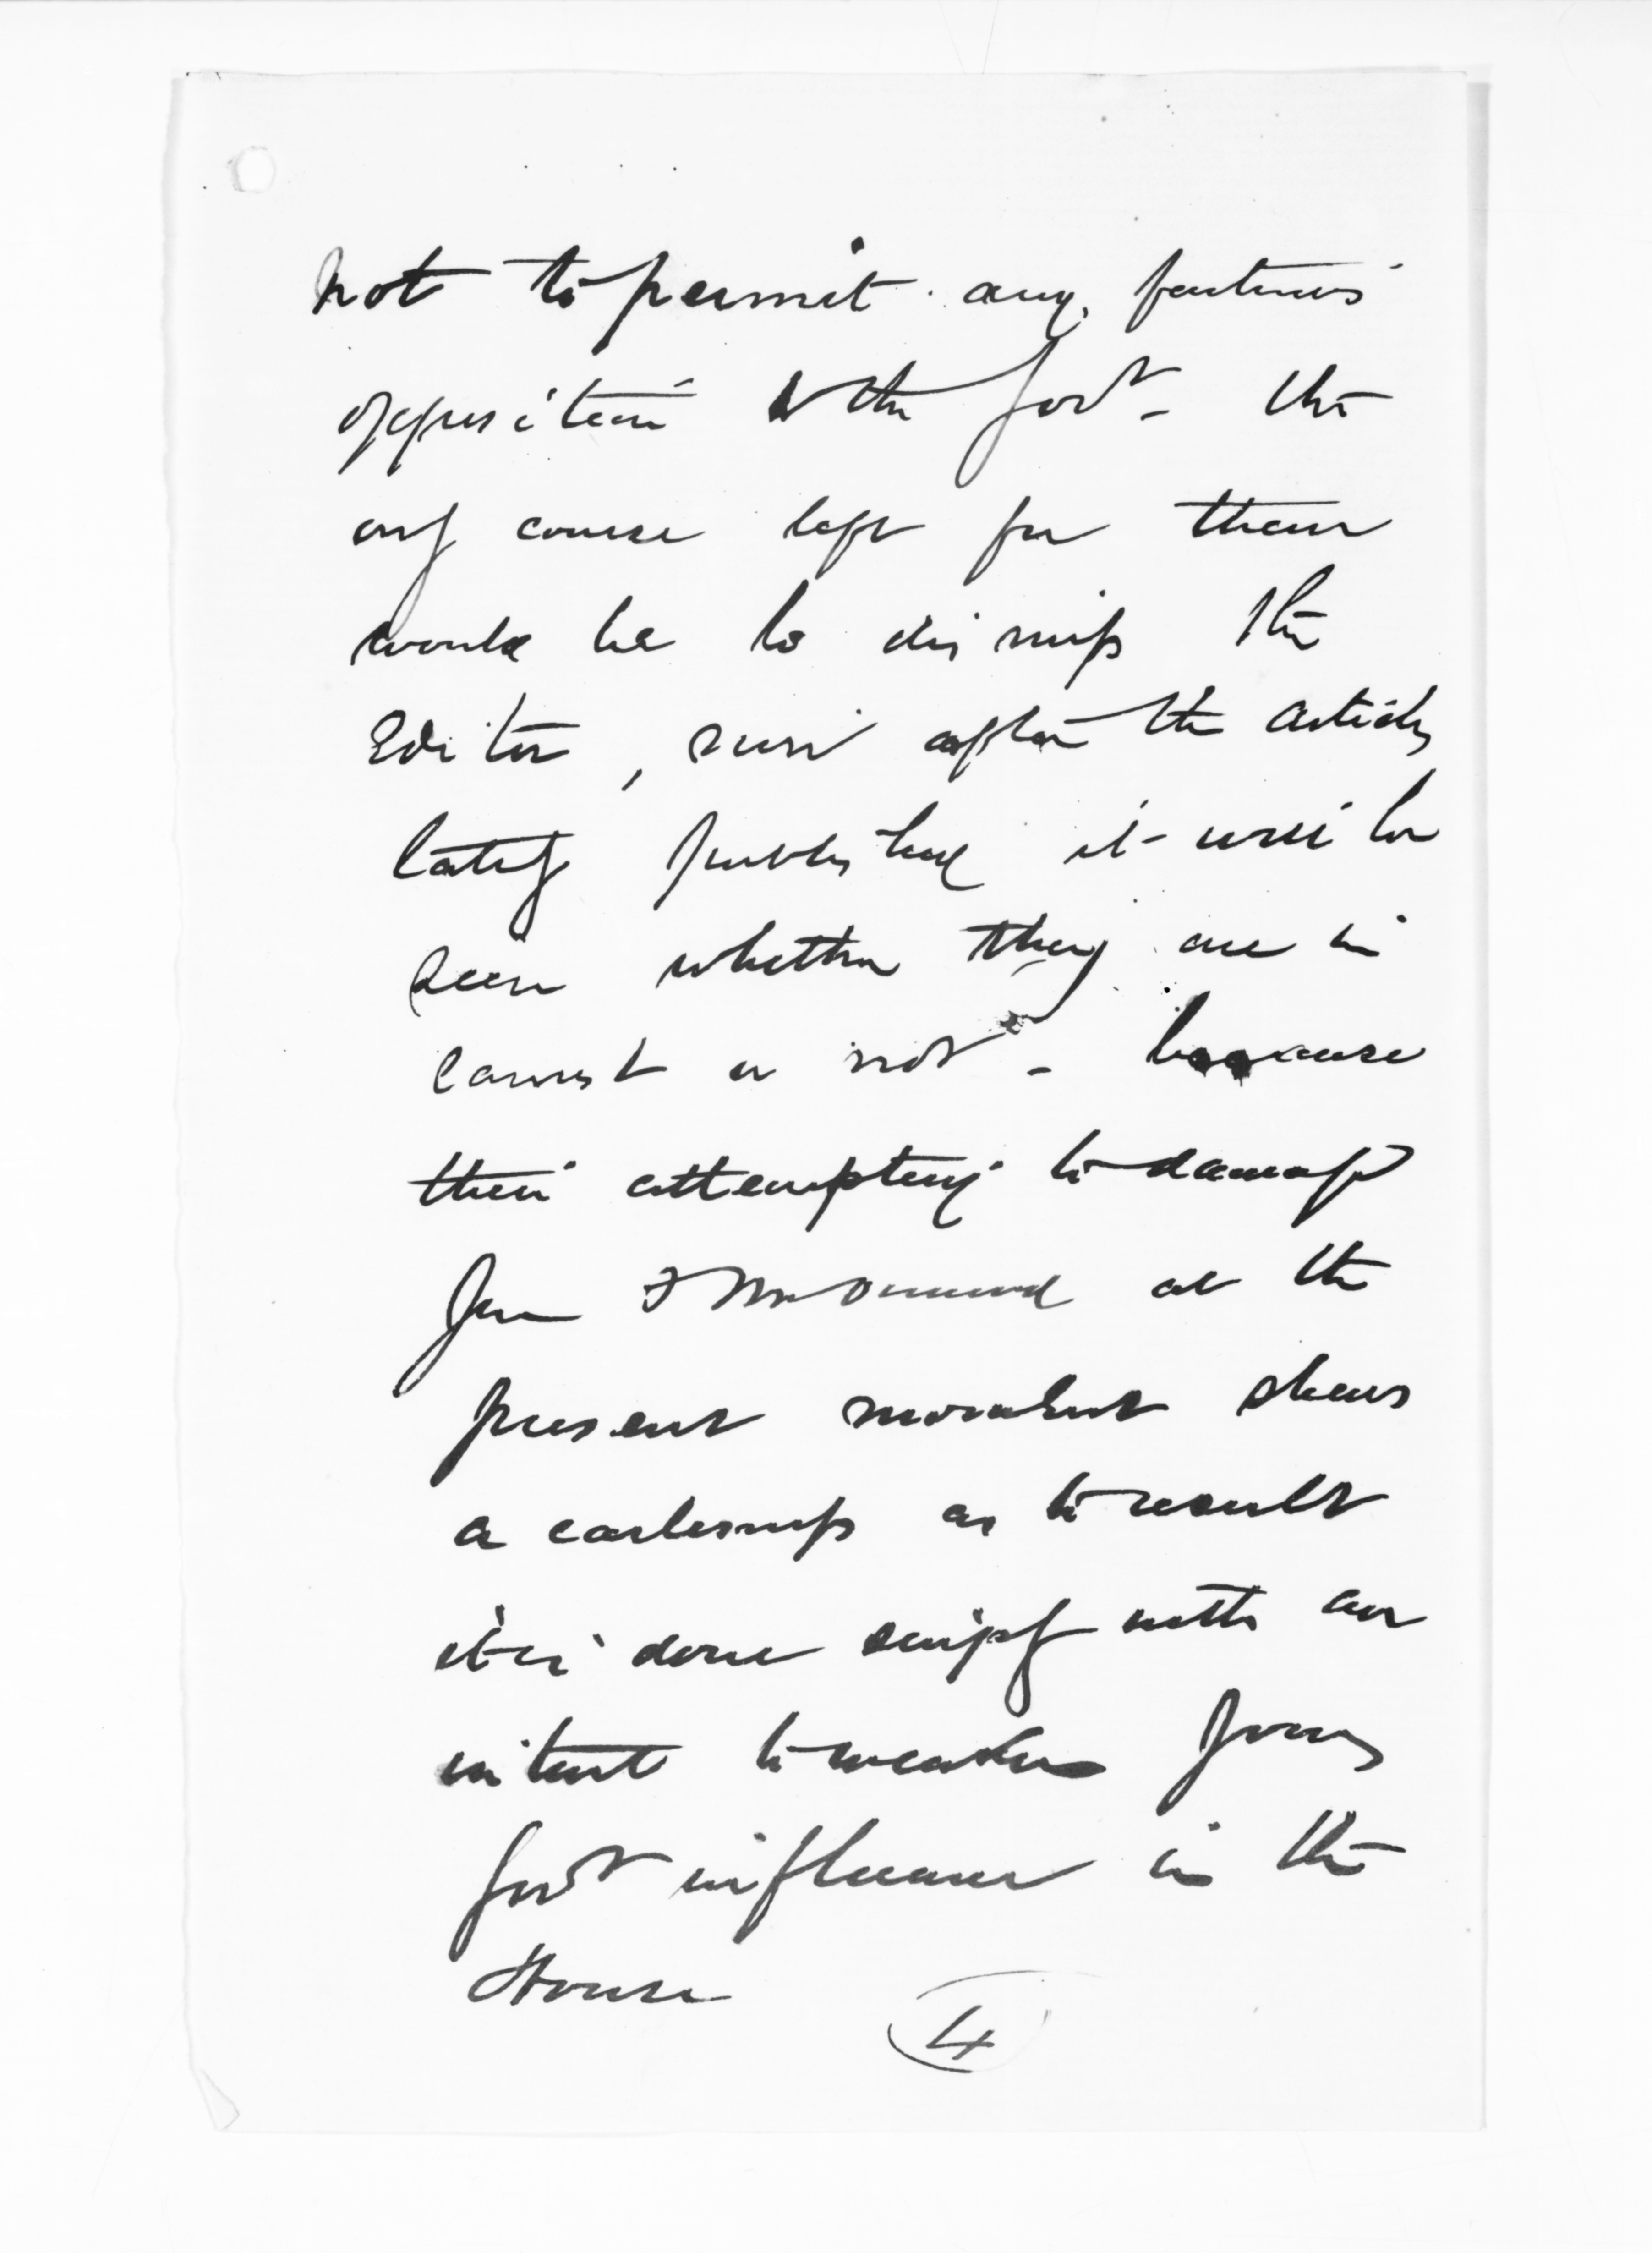 not to permit any factious
opposition to the Govt - the
only course left for them
would be to dismiss the
Editor, now after the articles
lately published it will be
seen whether they are in
earnest or not - because
their attempting to damage
you & McD at the
present moment shews
a carlesness as to result
it is done simply with an
intent to weaken your
Govt influence in the
House
4